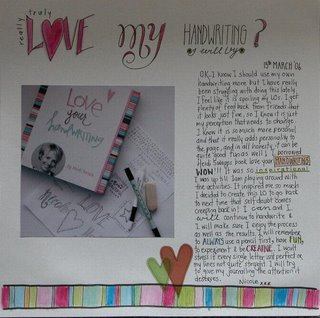 really truly
LOVE MY HANDWRITING?
& will by
15th MARCH '06
OK, I know I should use my own
handwriting more. But I have really
been struggling with doing this lately,
I feel like it is spoiling my LOs. I get
plenty of feed back from friends that
it looks just fine, so I know it is just
my perception that needs to change.
I know it is so much more personal
and that it really adds personality to
the page, and in all honesty, it can be
quite good fun as well. I
Heidi Swapps book Love your HANDWRITING
WOW!!! It was so inspirational
I was up till 2am playing around with
the activities. It inspired me so much
I decided to create this LO to go back
to next time that self doubt comes
creeping back in! I can and I
will continue to handwrite &
I will make sure I enjoy the process
as well as the results. I will remember
to ALWAYS use a pencil first, have FUN,
to experiment & be CREATIVE. I wont
stress if every single letter isnt perfect or
my lines not quite straight. I will try
to give my journaling the attention it
deserves.
Nicola xxx
Love
your
handwriting
by Heidi Swapp